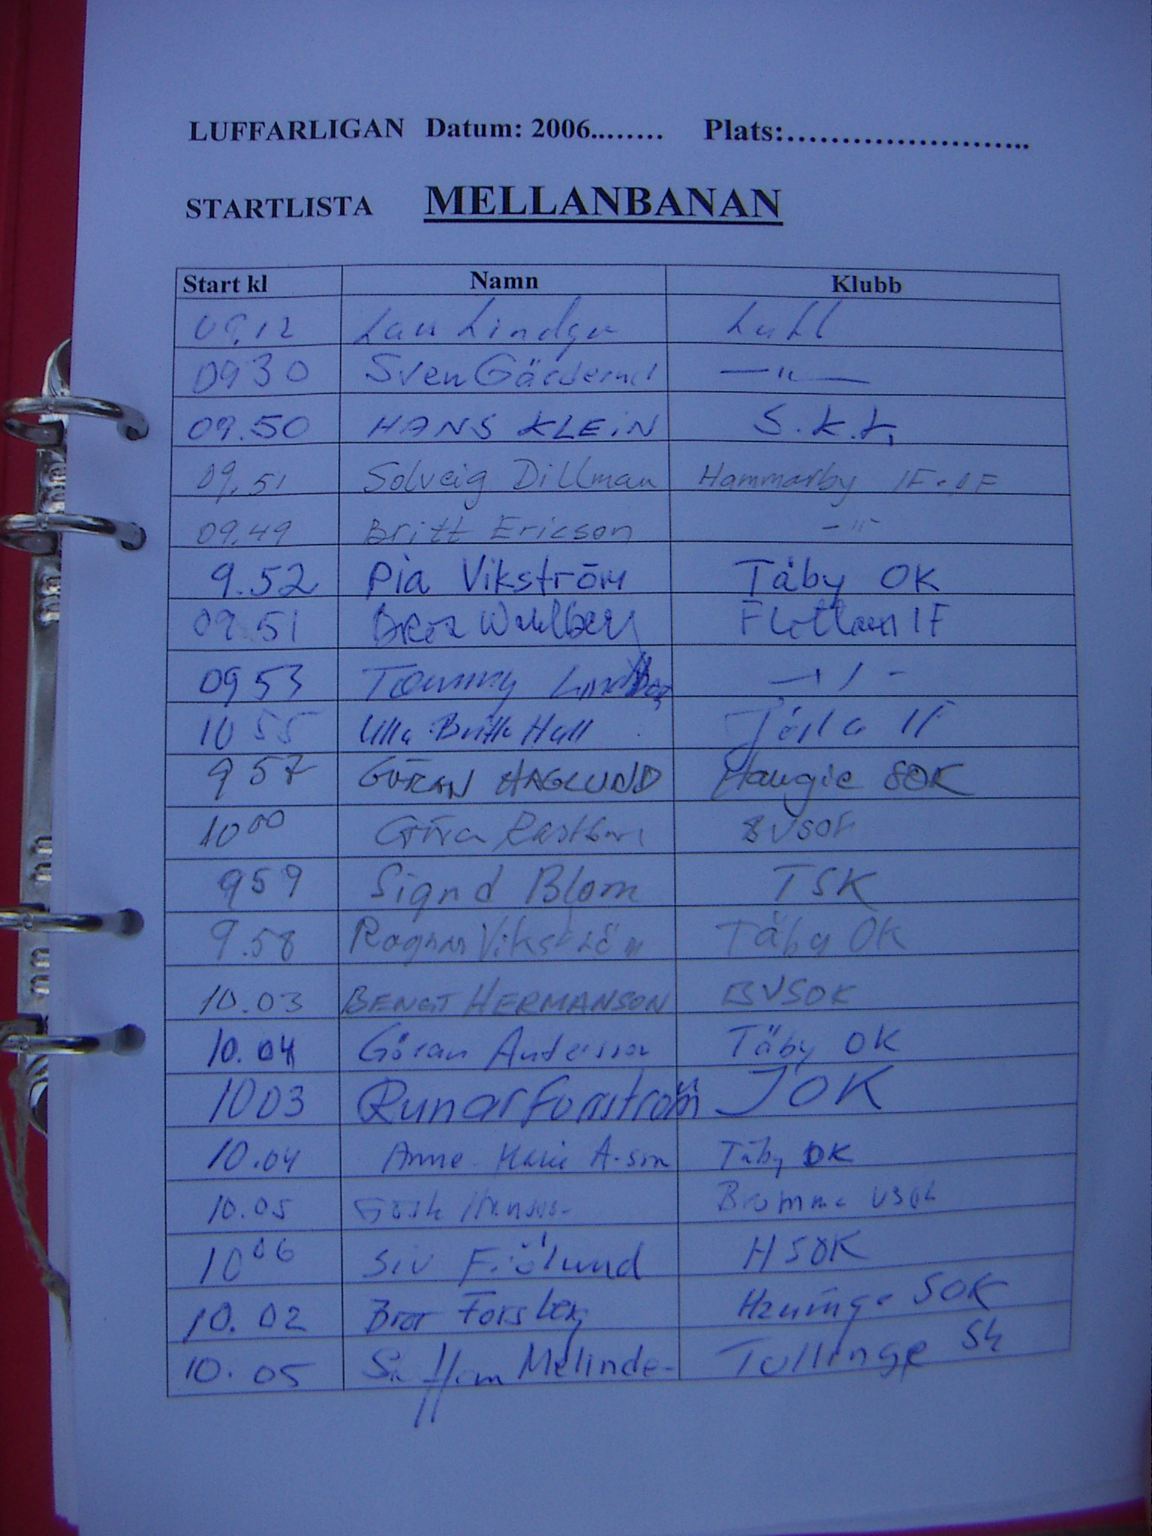 LUFFARLIGAN Datum: 2006........ Plats:........................
STARTLISTA MELLANBANAN
Start kl Namn Klubb
09.12
0930 Sven — " —
09.50 HANS KLEIN S.K.
09.51 Solveig Dillman Hammarby IF-OF
09.49 Britt Ericson - " -
9.52 Pia Vikström Täby OK
09.51 IF
0953 Tommy
1055 Ulla-Britt Hall Järla IF
957 GÖRAN HAGLUND SOK
10 00 Göran
959 Sigrid Blom TSK
9.58 Ragnar Vikström Täby OK
10.03 BENGT HERMANSON BVSOK
10.04 Göran Andersson Täby OK
1003 Runar Forsström JOK
10.04 Anne Marie A-son Täby OK
10.05 Bromma
10 06 Siv Fjölund HSOK
10.02 Bror Forsberg Haninge SOK
10.05 Staffan Melinde- Tullinge SK